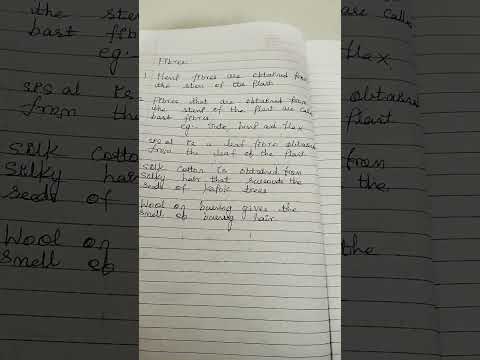 Fibres
1. Hemp fibres are obtained from
the stem of the plant
Fibres that are obtained from
the stems of the plant are called
bast fibres
eg: Jute, hemp and flax
sisal is a leaf fibre obtained
from the leaf of the plant
silk cotton is obtained from
silky hair that surrounds the
seeds of kapok trees
Wool on burning gives the
smell of burning hair